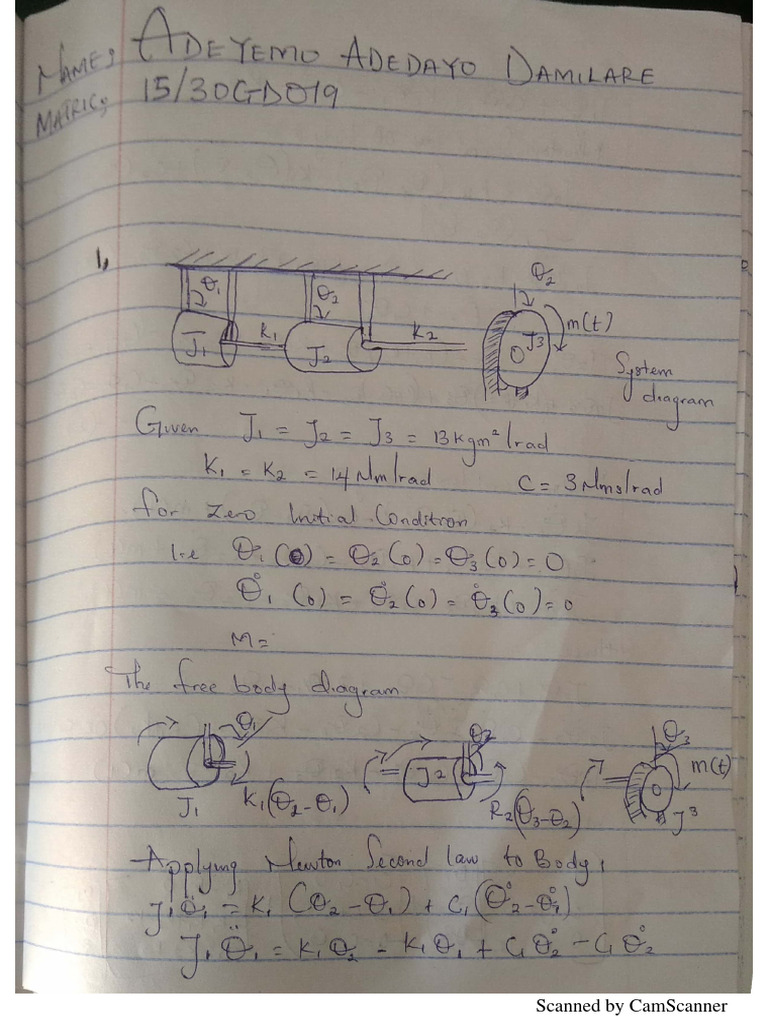 NAME: ADEYEMO ADEDAYO DAMILARE
MATRIC: 15/30GD019
1.
θ1 θ2 θ2
J1 K1 J2 K2 J3 m(t)
System
diagram
Given J1 = J2 = J3 = 13kgm²/rad
K1 = K2 = 14Nm/rad C = 3Nms/rad
for zero Initial Condition
i.e θ1(0) = θ2(0) = θ3(0) = 0
θ̇1(0) = θ̇2(0) = θ̇3(0) = 0
M =
The free body diagram
θ1 θ2 θ3
J1 K1(θ2-θ1) J2 R2(θ3-θ2) m(t) J3
Applying Newton Second law to Body 1
J1θ̈1 = K1(θ2-θ1) + C1(θ̇2-θ̇1)
J1θ̈1 = K1θ2 - K1θ1 + C1θ̇2 - C1θ̇2
Scanned by CamScanner